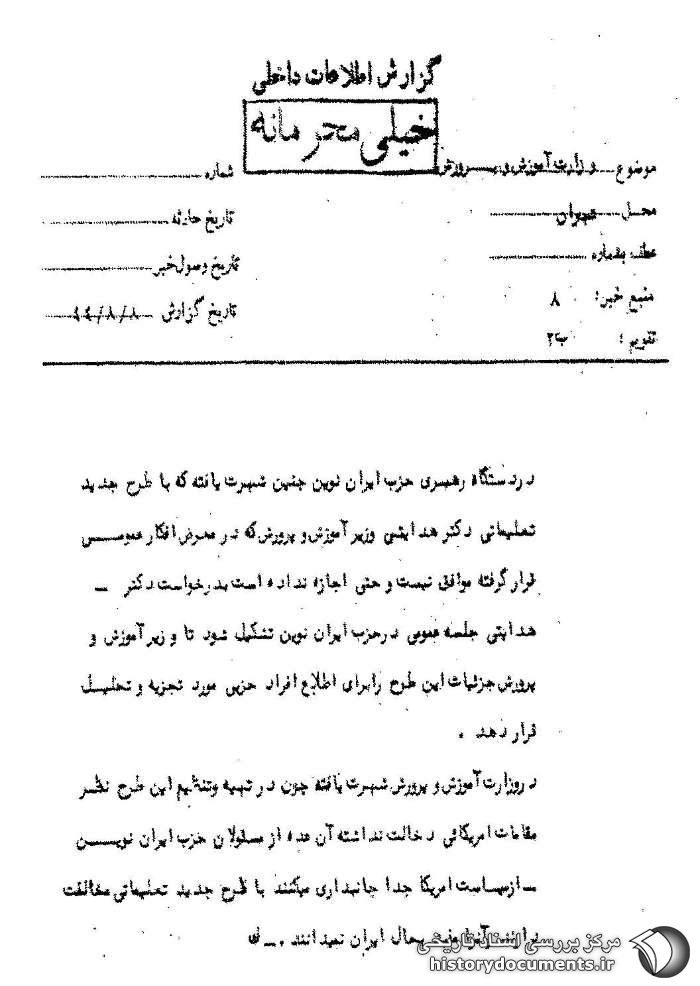 گزارش اطلاعات داخلی
خیلی محرمانه
موضوع وزارت آموزش و پرورش
شماره
محل تهران
تاریخ حادثه
عطف بشماره
تاریخ وصول خبر
منبع خبر: ۸
تاریخ گزارش ۴۴/۸/۸
تقویم: ب۲
در دستگاه رهبری حزب ایران نوین چنین شهرت یافته که با طرح جدید
تعلیماتی دکتر هدایتی وزیر آموزش و پرورش که در معرض افکار عمومی
قرار گرفته موافق نیست و حتی اجازه نداده است بدرخواست دکتر –
هدایتی جلسه عمومی درحزب ایران نوین تشکیل شود تا وزیر آموزش و
پرورش جزئیات این طرح را برای اطلاع افراد حزبی مورد تجزیه و تحلیل
قرار دهد .
در وزارت آموزش و پرورش شهرت یافته چون در تهیه و تنظیم این طرح نظر
مقامات امریکائی دخالت نداشته آن عده از مسئولان حزب ایران نوین
– از سیاست امریکا جدا جانبداری میکنند با طرح جدید تعلیماتی مخالفت
دارند و آنرا مفید بحال ایران نمیدانند . –
مرکز بررسی اسناد تاریخی
historydocuments.ir